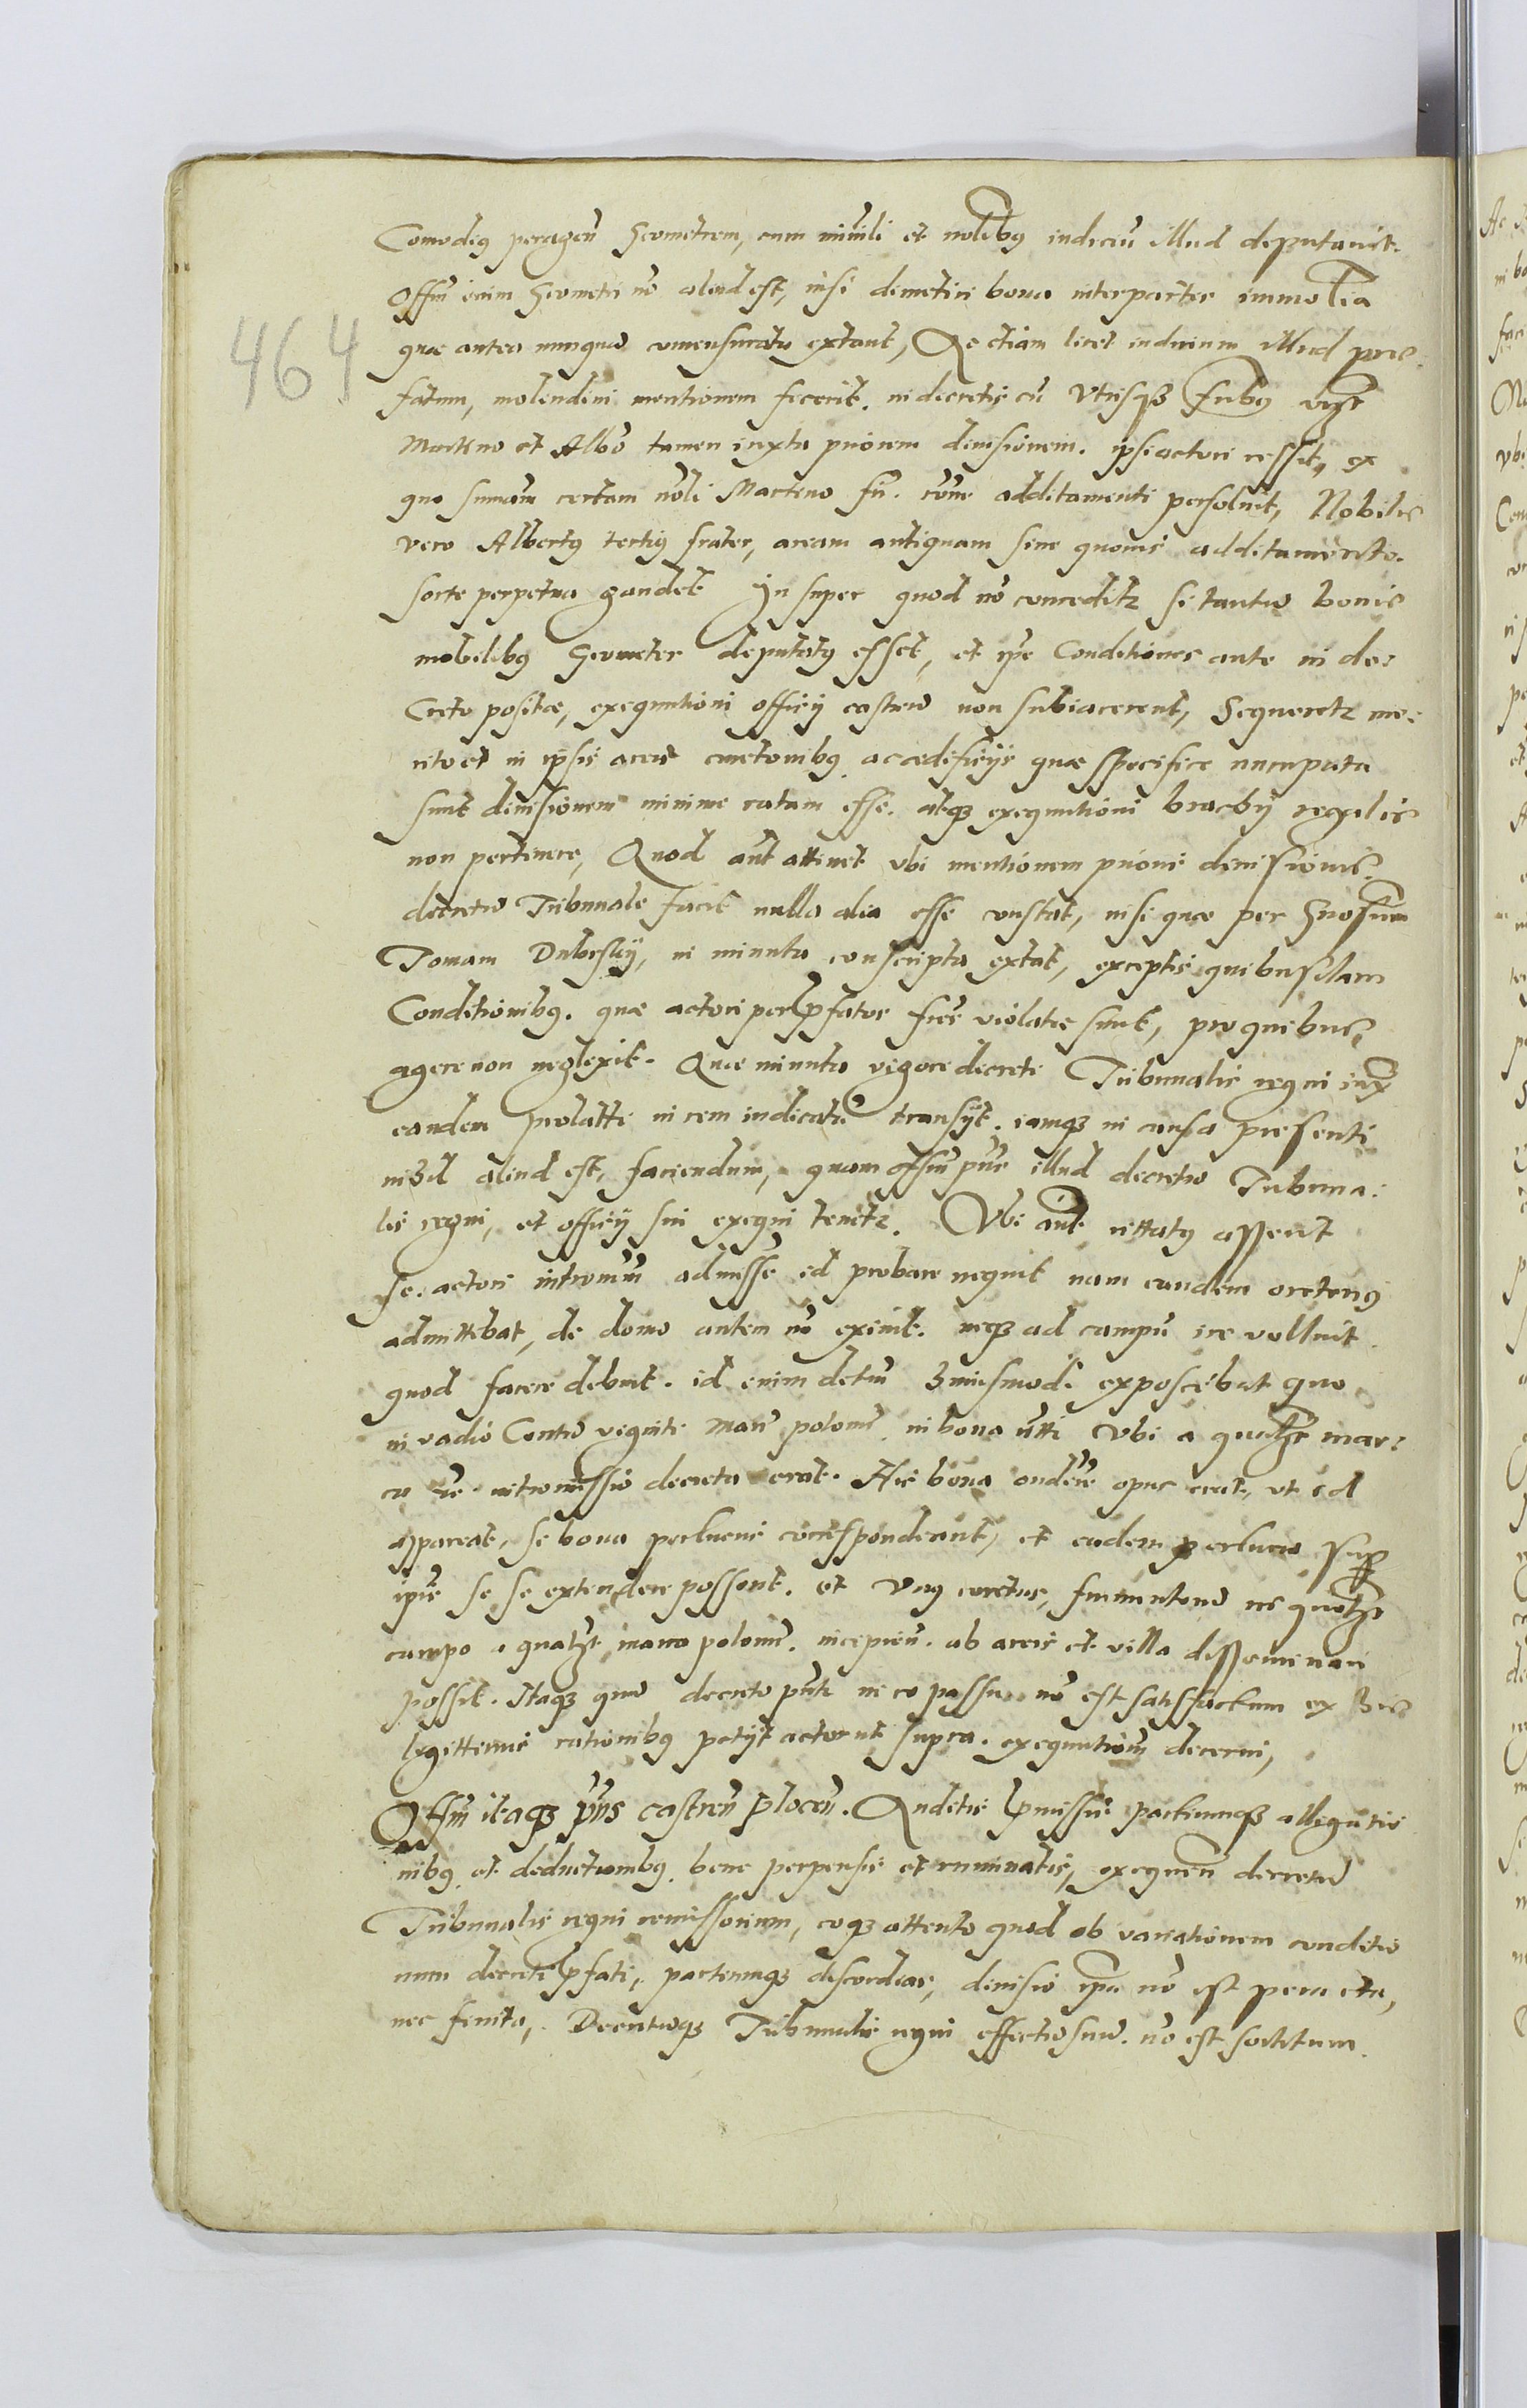 Comodius peragen̄ Geometrem, cum minīli et nolībus iudiciū illud deputavit.
Offm̄ enim Geometri nō aliud est, nisi dimetiri bona interpartes immolīa
quæ antea nunquā comensurata extant, Ac etiam licet iudicium illud præ
464
fatum, molendini mentionem fecerit. in decretis cū Utrisqz frībus vizt
Martino et Albō tamen iuxta priorem divisionem. ipsi actori cessit, ex
quo summam certam nōli Martino frī. rōne additamenti persolvit, Nobilis
vero Albertus tertius frater, aream antiquam sine quovis additamento.
sorte perpetua gaudet In super quod nō conceditz si tantū bonis
mobilibus Geometer deputatus esset, et ipse Conditiones ante in de:
Creto positæ, exequutioni officÿ castren̄ non subiacerent, Sequeretz me:
rito et in ipsis areis cmetonibus accedificÿs quæ specifice nuncupata
sunt divisionem minime ratam esse. atqz exequutioni brachÿ regalis
non pertinere, Quod aūt attinet ubi mentionem prioris divisionis
decretū Tribunale facit nulla alia esse constat, nisi quæ per Gnosum
Tomam Dubrskÿ, in minuta conscripta extat, exceptis quibusdam
Conditionibus. quæ actori per pfatos frēs violatæ sunt, pro quibus
agere non neglexit. Quæ minuta vigore decreti Tribunalis regni iuxta
eandem prolatti in rem iudicatā transÿt. iamqz in causa presenti
nihil aliud est, faciendum, quam offm̄ pns̄ illud decretū Tribuna:
lis regni, et officÿ sui exequi tenetz. Ubi aūt cittatus asserit
se. actori intromm̄ admisse id probare nequit nam eundem oretenus
admittebat, de domo autem nō exivit. neqz ad campū ire voluit
quod facere debuit. id enim detm̄ huiusmodi exposcebat quo
in vadio Centū viginti mar̄ polon̄. in bona ītti Ubi a qualzt mar:
ca re intromissio decreta erat. Hic bona ondere opus erat, ut id
appareat, se bona per lucris correspondeant, et eadem per lucra supr
ipis se se extendere possent. et Unus coretus, frumentorū in quolzt
campo a qualzt marca polon̄. incipien̄. ab areis et villa disseminari
possit. Itaqz quia decreto pn̄ti in eo passu nō est satisfactum ex his
legittimis rationibus petÿt actor ut supra. exequutionem decerni,
Offm̄ itaqz pn̄s castren̄ plocen̄. Auditis pmissis partiumqz allegatio
nibus et deductionibus bene perpensis et ruminatis, exequen̄ decretū
Tribunalis regni remissorium, eoqz attento quod ob variationem conditio
num decreti pfati, partiumqz discordias, divisio ipa nō est peracta,
nec finita, Decretumqz Tribunalis regni effectū suū. nō est sortitum.